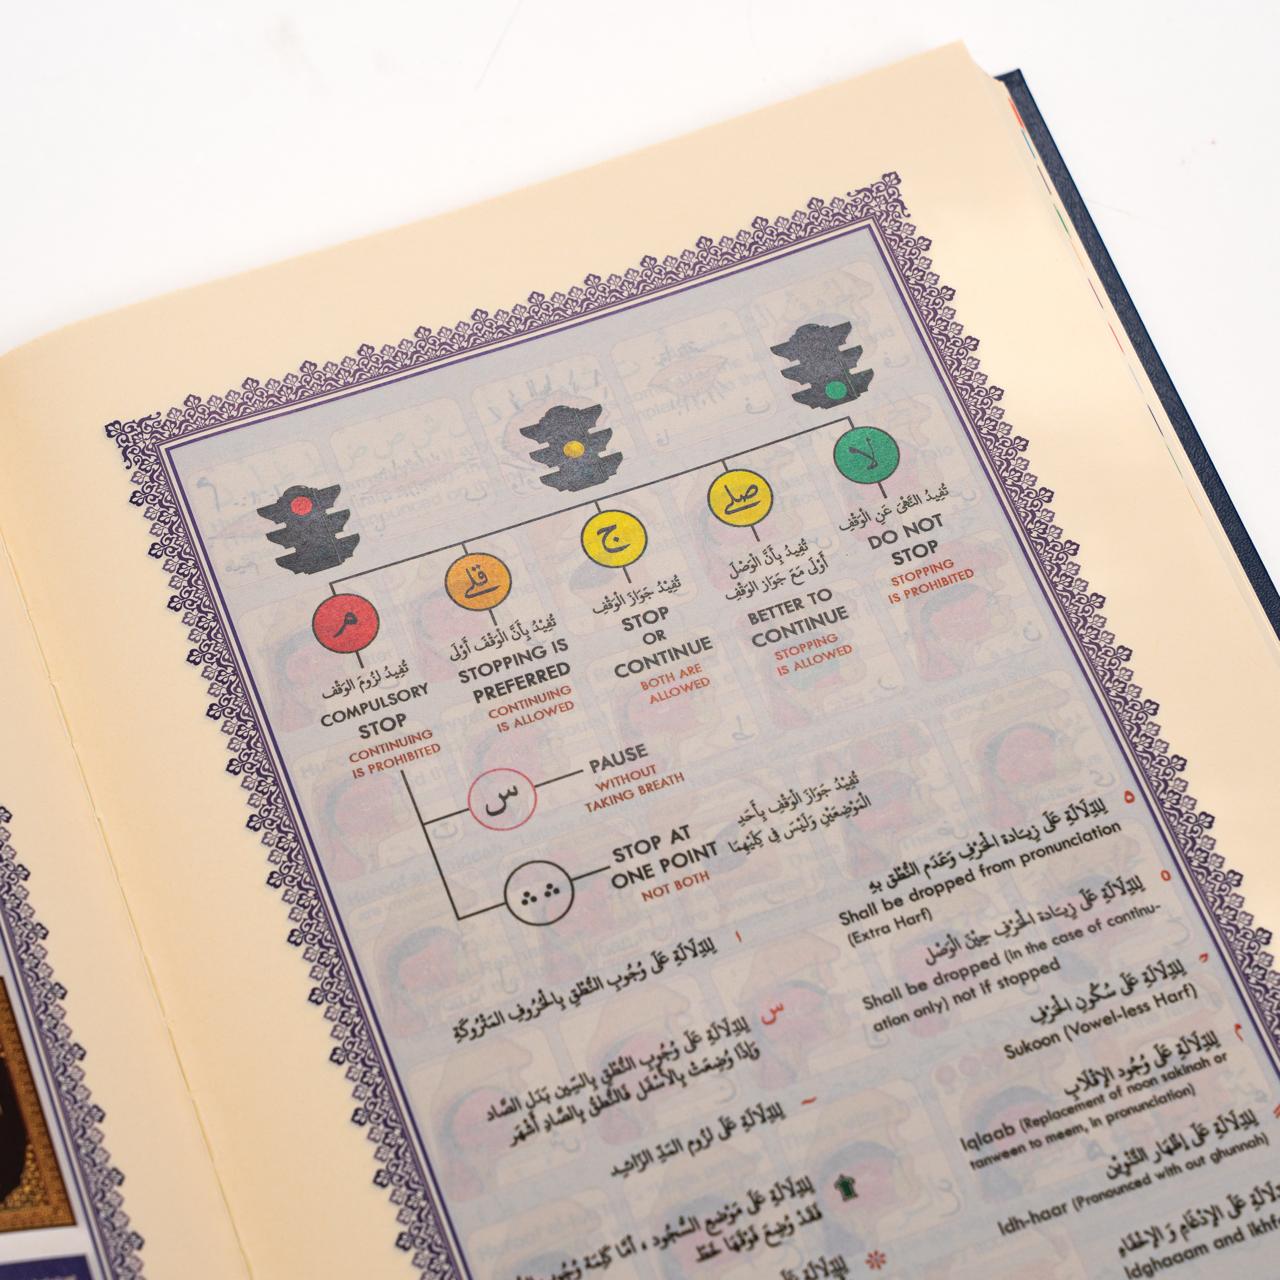 م
تُفِيدُ لُزُومَ الوَقْف
COMPULSORY
STOP
CONTINUING
IS PROHIBITED
قلى
تُفِيدُ بِأَنَّ الوَقْفَ أَوْلَى
STOPPING IS
PREFERRED
CONTINUING
IS ALLOWED
ج
تُفِيدُ جَوَازَ الْوَقْفِ
STOP
OR
CONTINUE
BOTH ARE
ALLOWED
صلى
تُفِيدُ بِأَنَّ الْوَصْلَ
أَوْلَى مَعَ جَوَازِ الْوَقْفِ
BETTER TO
CONTINUE
STOPPING
IS ALLOWED
لا
تُفِيدُ النَّهْيَ عَنِ الْوَقْفِ
DO NOT
STOP
STOPPING
IS PROHIBITED
س
PAUSE
WITHOUT
TAKING BREATH
∴ ∴
STOP AT
ONE POINT
NOT BOTH
تُفِيدُ جَوَازَ الْوَقْفِ بِأَحَدِ
الْمَوْضِعَيْنِ وَلَيْسَ فِي كِلَيْهِمَا
لِلدِّلَالَةِ عَلَى زِيَادَة الْحَرْفِ وَعَدَمِ النُّطْقِ بِهِ
Shall be dropped from pronunciation
(Extra Harf)
لِلدِّلَالَةِ عَلَى زِيَادَة الْحَرْفِ حِيْنَ الْوَصْل
Shall be dropped (in the case of continu-
ation only) not if stopped
لِلدِّلَالَةِ عَلَى سُكُونِ الْحَرْفِ
Sukoon (Vowel-less Harf)
م لِلدِّلَالَةِ عَلَى وُجُودِ الإِقْلَابِ
Iqlaab (Replacement of noon sakinah or
tanween to meem, in pronunciation)
لِلدِّلَالَةِ عَلَى إِظْهَارِ التَّنْوِيْنِ
Idh-haar (Pronounced with out ghunnah)
عَلَى الإِدْغَامِ وَ الإِخْفَاءِ
Idghaaam and Ikhf
ا لِلدِّلَالَةِ عَلَى وُجُوبِ النُّطْقِ بِالْحُرُوفِ الْمَتْرُوكَةِ
س لِلدِّلَالَةِ عَلَى وُجُوبِ النُّطْقِ بِالسِّينِ بَدَلَ الصَّاد
وَإِذَا وُضِعَتْ بِالْأَسْفَلِ فَالنُّطْقُ بِالصَّادِ أَشْهَر
~ لِلدِّلَالَةِ عَلَى لُزُومِ الْمَدِّ الزَّائِدِ
لِلدِّلَالَةِ عَلَى مَوْضِعِ السُّجُود ، أَمَّا كَلِمَة وُجُوب
فَقَدْ وُضِعَ فَوْقَهَا خَطّ
لِلدِّلَالَةِ عَلَى